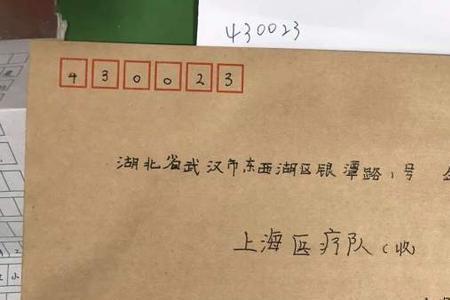 430023
430023
湖北省武汉市东西湖区银潭路1号
上海医疗队(收